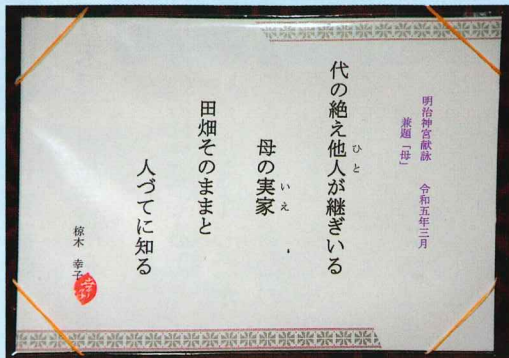 明治神宮献詠 令和五年三月
兼題「母」
代の絶え他人が継ぎいる
ひと
母の実家
いえ
田畑そのままと
人づてに知る
椋木 幸子